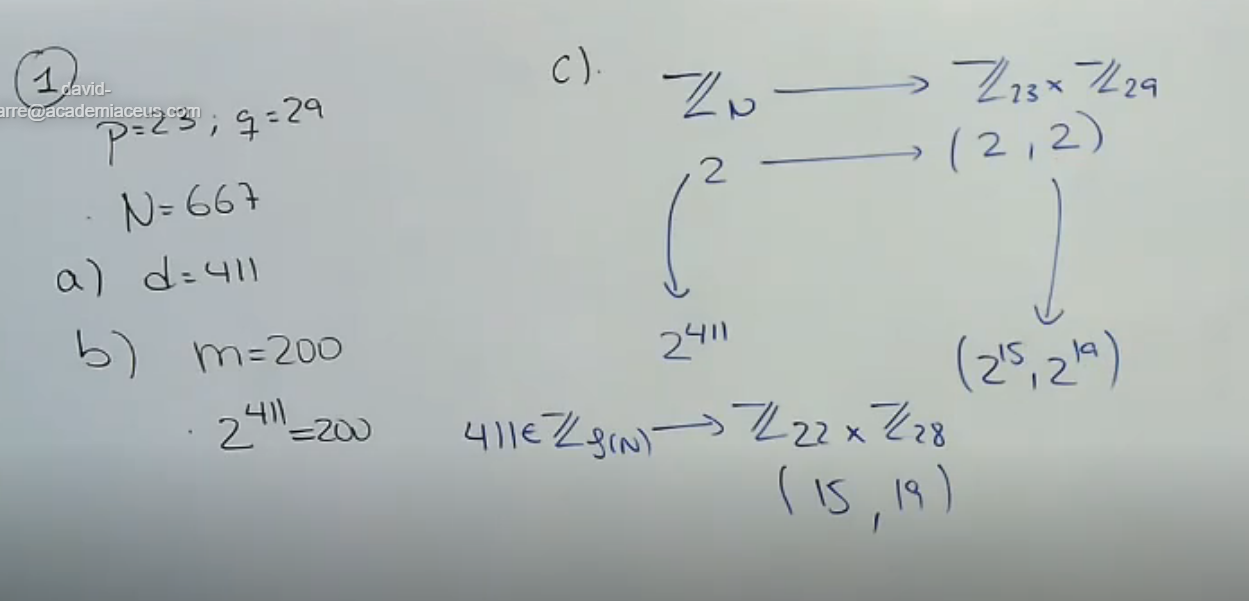 1
david-
arre@academiaceus.com
p=23; q=29
N=667
a) d=411
b) m=200
2^411=200
c).
ℤ_N → ℤ_23 × ℤ_29
2 → (2, 2)
2^411
(2^15, 2^19)
411 ∈ ℤ_φ(N) → ℤ_22 × ℤ_28
(15, 19)